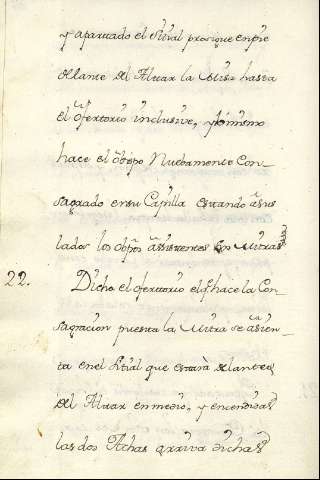 y apartado el Sitial prosigue en pie
delante del Altar la Missa hasta
el ofertorio inclusive, y lo mismo
hace el obispo Nuebamente Con-
sagrado en su Capilla estando a sus
lados los obpos assistentes con Mitras
22. Dicho el ofertorio el q hace la Con-
sagracion puesta la Mitra se assien-
ta en el Sitial que estarà delante
del Altar en medio, y encendidas
las dos Achas dichas